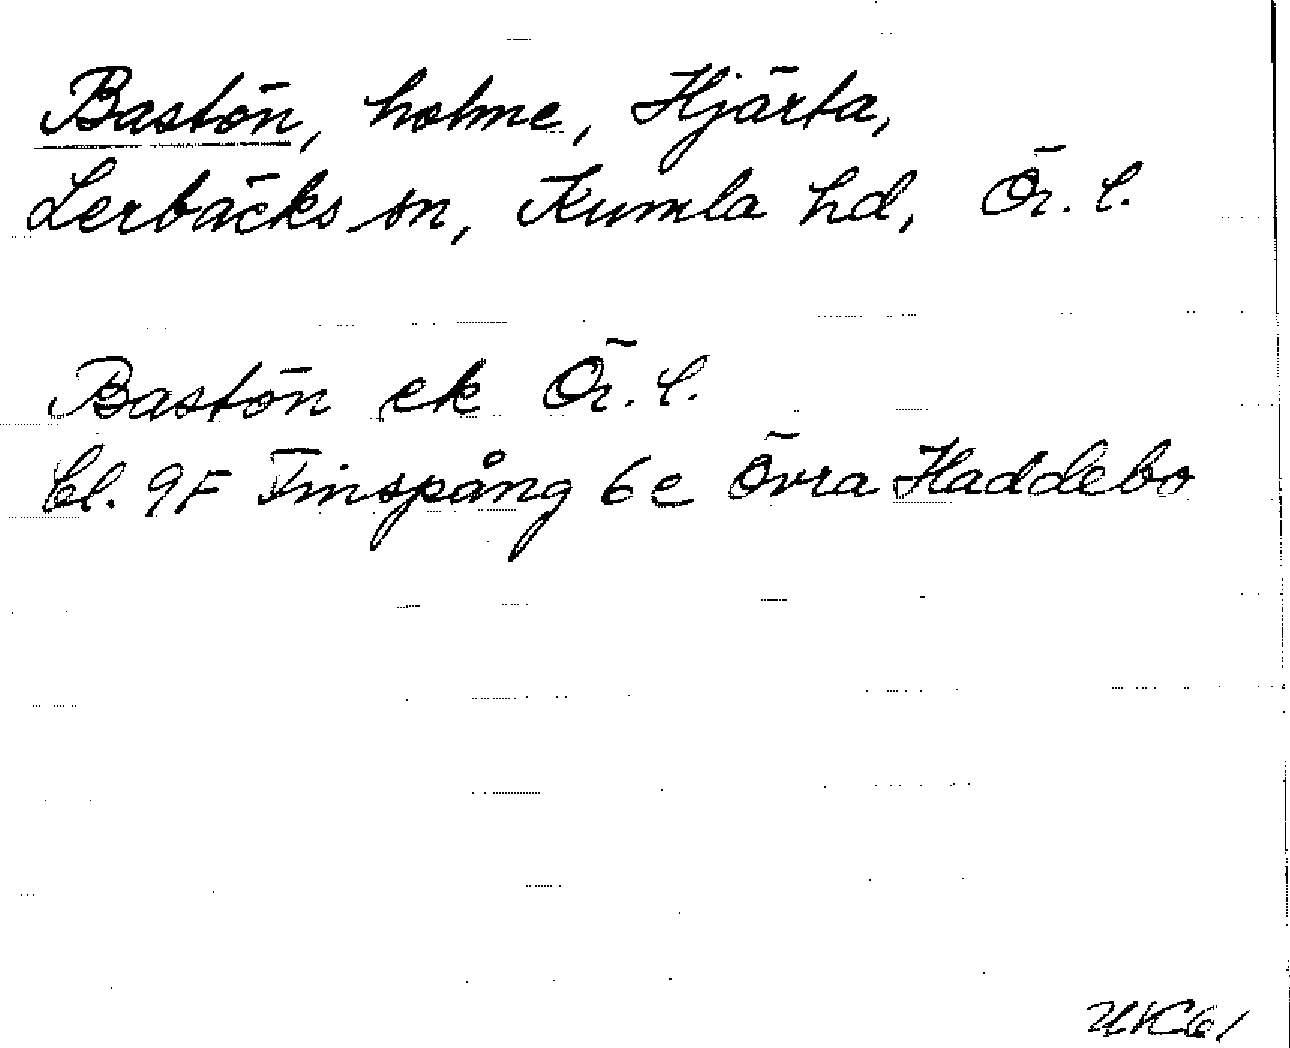 Bastön, holme, Hjärta,
Lerbäcks sn, Kumla hd, Ör. l.
Bastön ek Ör. l.
bl. 9F Finspång 6e Övra Haddebo
UK61